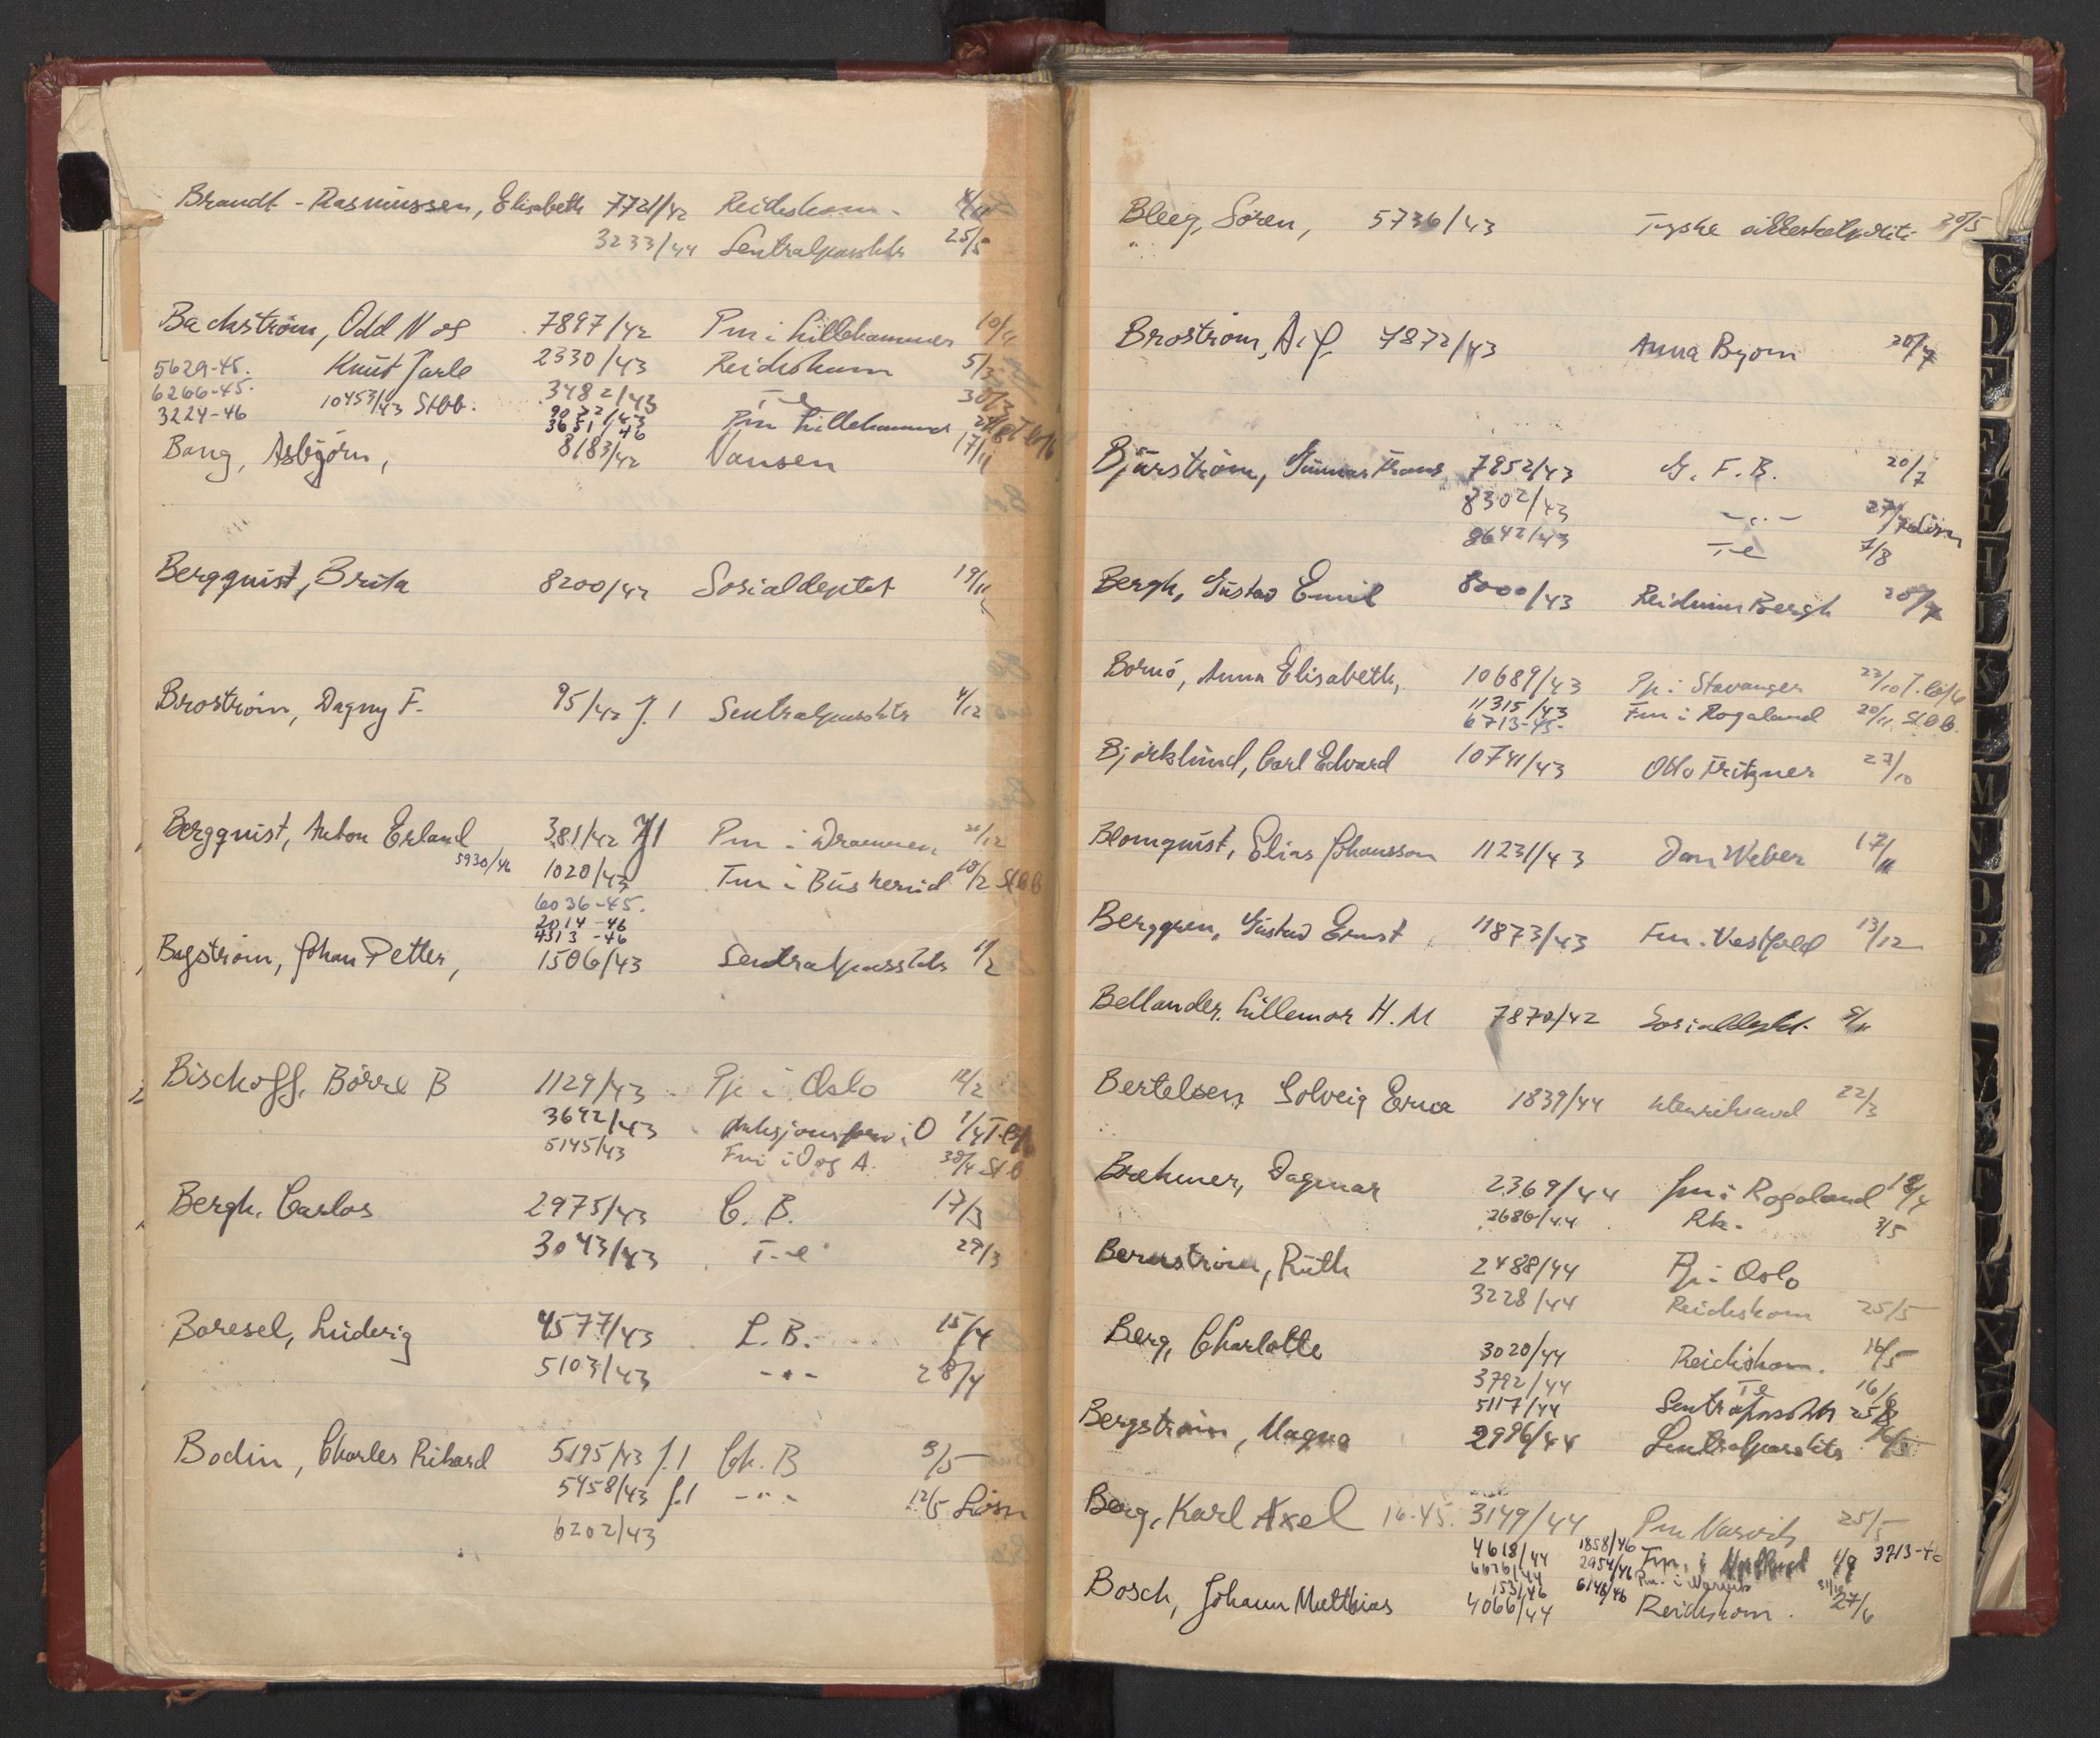 Brandt - Rasmussen, Elisabeth 7721/42 Reichskom. 4/11
3233/44 Sentralpasskts 25/5
Backström, Odd N og 7897/42 Pm i Lillehammer 10/11
5629-45. Knut Jarle 2330/43 Reichskom 5/3
6266-45. 10453/43 Stbb. 3482/43 T-e 30/3
3224-46 9022/43 Pm Lillehammer
3651/46
Bang, Asbjörn, 8183/42 Nansen 17/11
Bergquist, Brita 8200/42 Sosialdeptet 19/11
Broström, Dagny F. 95/42 J. 1 Sentralpasskts 4/12
Bergquist, Anton Erland 381/42 J1 Pm i Drammen 21/12
5930/46 1020/43 Fm i Buskerud 10/2 Stbb
6036-45.
2014-46
4313-46
Bystrøm, Johan Petter, 1506/43 Sentralpasskts 11/2
Bischoff, Börre B 1129/43 Pp i Oslo 12/2
3692/43 Auksjons i O 1/4
5145/43 Fm i O og A. 30/4 Stb
Bergh, Carlos 2975/43 C. B. 17/3
3043/43 T-e 29/3
Boresel, Ludwig 4577/43 L. B. 15/4
5103/43 - " - 28/4
Bodin, Charles Rikard 5195/43 J.1 Ch. B 5/5
5458/43 J.1 - " - 12/5 Lösn
6202/43
Bleeg, Sören, 5736/43 Tyske sikkerhetspoliti 20/5
Broström, A. J. 7872/43 Anna Byom 20/7
Bjurström, Gunnar Frans 7952/43 G. F. B. 20/7
8302/43 - " - 27/7 Lösn
8642/43 T-e 7/8
Bergh, Gustav Emil 8000/43 Reidunn Bergh 20/7
Bornö, Anna Elisabeth, 10689/43 Pp i Stavanger 22/10
11315/43 Fm i Rogaland 20/11 Stbb.
6713-45-
Björklund, Carl Edvard 10741/43 Otto Fritzner 27/10
Blomquist, Elias Johansson 11231/43 Dan Weber 17/11
Berggren, Gustav Ernst 11873/43 Fm. Vestfold 13/12
Bellander, Lillemor H. M 7870/42 Sosialdept. 5/11
Bertelsen, Solveig Erna 1839/44 22/3
Bræhmer, Dagmar 2369/44 Fm i Rogaland 18/4
2680/44 Rk. 3/5
Bernström, Ruth 2488/44 Pp i Oslo
3228/44 Reichskom 25/5
Berg, Charlotte 3020/44 Reichskom. 16/5
3792/44 T-e 16/6
5117/44 Sentralpasskts 25/8
Bergström, Magna 2996/44 Sentralpasskts
Berg, Karl Axel 16-45. 3149/44 Pm Narvik 25/5
4618/44 1858/46 Fm. i Nordland 1/9 3713-46
6626/44 2954/46 Pm. i Narvik
153/46 6148/46 31/10
Bosch, Johann Matthias 4066/44 Reichskom. 27/6
C
D
E
F
G
H
I
J
K
L
M
N
O
P